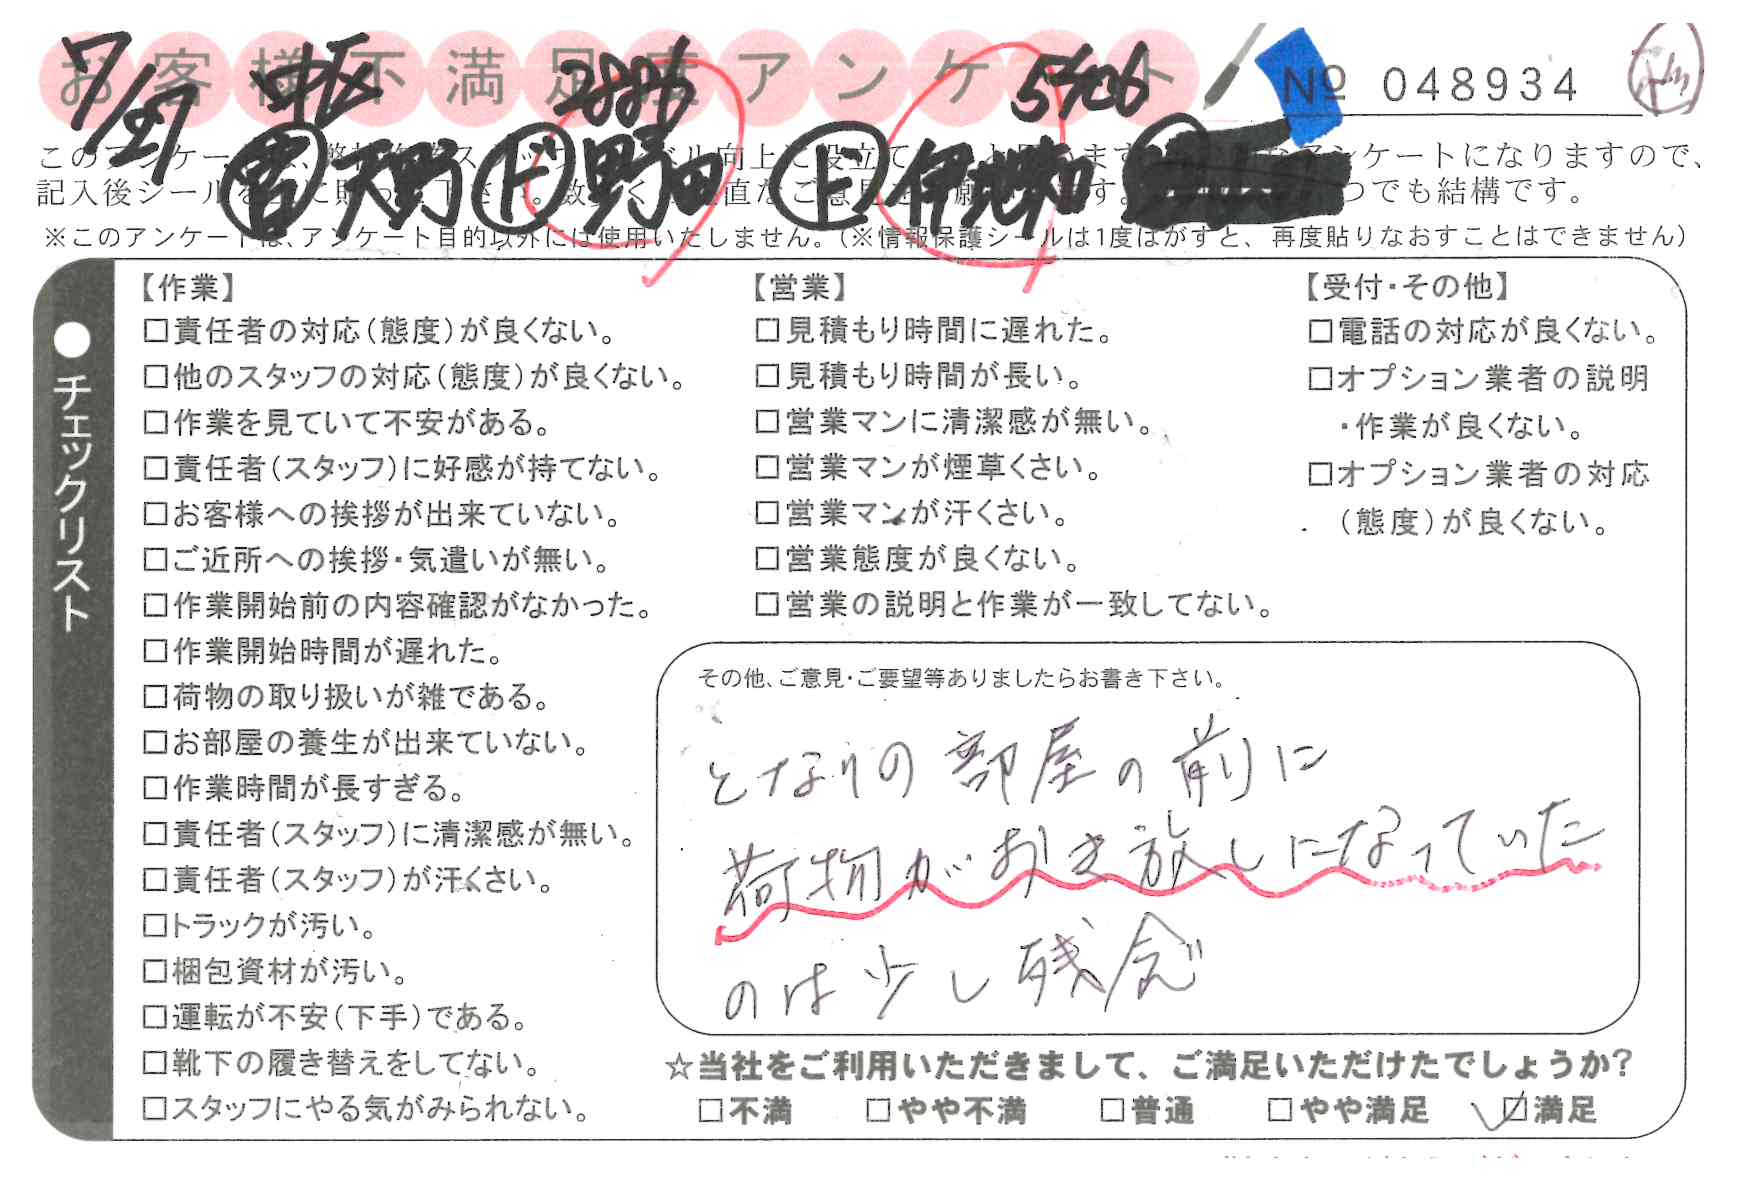 お客様不満足度アンケート
7/27 中区 2886 5406 № 048934
営 天野 ド 野田 上 伊地知
このアンケートは、 向上に役立て ます アンケートになりますので、
記入後シールを に貼って下さい。数多く 直なご意見をお願 す。 つでも結構です。
※このアンケートは、アンケート目的以外には使用いたしません。（※情報保護シールは1度はがすと、再度貼りなおすことはできません）
●チェックリスト
【作業】
□責任者の対応（態度）が良くない。
□他のスタッフの対応（態度）が良くない。
□作業を見ていて不安がある。
□責任者（スタッフ）に好感が持てない。
□お客様への挨拶が出来ていない。
□ご近所への挨拶・気遣いが無い。
□作業開始前の内容確認がなかった。
□作業開始時間が遅れた。
□荷物の取り扱いが雑である。
□お部屋の養生が出来ていない。
□作業時間が長すぎる。
□責任者（スタッフ）に清潔感が無い。
□責任者（スタッフ）が汗くさい。
□トラックが汚い。
□梱包資材が汚い。
□運転が不安（下手）である。
□靴下の履き替えをしてない。
□スタッフにやる気がみられない。
【営業】
□見積もり時間に遅れた。
□見積もり時間が長い。
□営業マンに清潔感が無い。
□営業マンが煙草くさい。
□営業マンが汗くさい。
□営業態度が良くない。
□営業の説明と作業が一致してない。
【受付・その他】
□電話の対応が良くない。
□オプション業者の説明
・作業が良くない。
□オプション業者の対応
（態度）が良くない。
その他、ご意見・ご要望等ありましたらお書き下さい。
となりの部屋の前に
荷物がおき放しになっていた
のは少し残念
☆当社をご利用いただきまして、ご満足いただけたでしょうか？
□不満 □やや不満 □普通 □やや満足 ☑満足